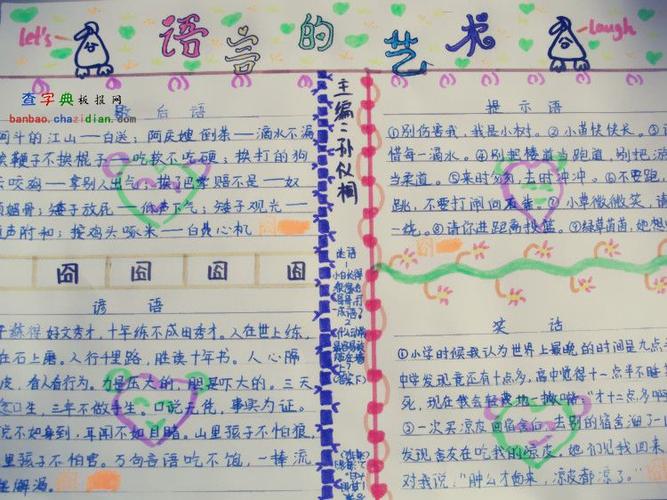 let's
语言的艺术
laugh
查字典板报网
banbao.chazidian.com
歇后语
阿斗的江山——白送；阿庆嫂倒茶——滴水不漏
挨鞭子不挨棍子——吃软不吃硬；挨打的狗
去咬鸡——拿别人出气；挨了巴掌赔不是——奴
颜媚骨；矮子放屁——低声下气；矮子观光——
随声附和；按鸡头啄米——白费心机
囧 囧 囧 囧
谚语
好文秀才，十年练不成田秀才。人在世上练，
在石上磨。人行千里路，胜读十年书。人心隔
皮，看人看行为。力是压大的，胆是吓大的。三天
口生，三年不做手生。口说无凭，事实为证。
不如身到，耳闻不如目睹。山里孩子不怕狼，
里孩子不怕官。万句言语吃不饱，一捧流
解渴。
主编：孙仪桐
提示语
①别伤害我，我是小树。②小苗快快长。③
惜每一滴水。④别把楼道当跑道，别把
当柔道。⑤来时匆匆，去时冲冲。⑥不要跑，
跳，不要打闹回看看。⑦小草微微笑，请
一绕。⑧请你进距离投篮。⑨绿草茵茵，她想
笑话
①小学时候我认为世界上最晚的时间是九点
中学发现竟还有十点多，高中觉得十一点半不睡
死，现在我会轻蔑地一撇嘴："才十二点多
③一次买凉皮回宿舍后，去别的宿舍溜了一
发现舍友在吃我的凉皮，她们见我回来
对我说，"肿么才回来，凉皮都凉了。"